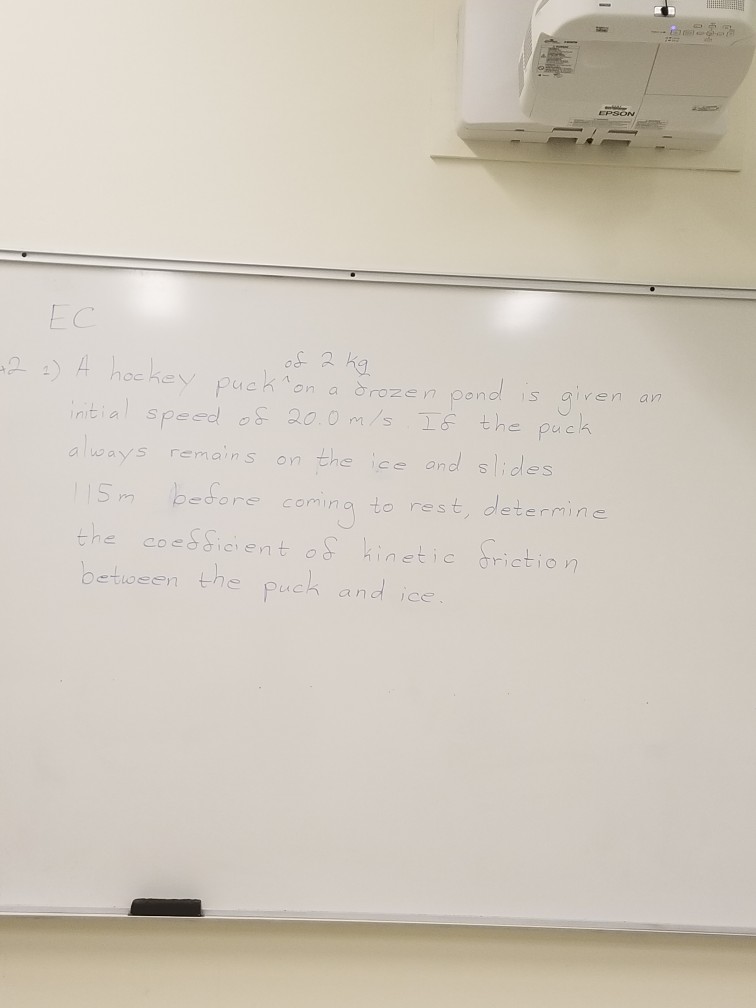 EPSON
EC
of 2 kg
+2 1) A hockey puck ^ on a frozen pond is given an
initial speed of 20.0 m/s If the puck
always remains on the ice and slides
115m before coming to rest, determine
the coefficient of kinetic friction
between the puck and ice.